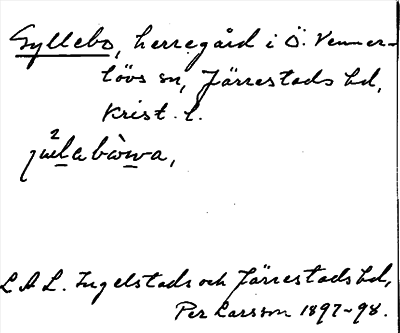 Gyllebo, herregård i Ö. Vemmer-
lövs sn, Järrestads hd,
Krist. l.
L A L. Ingelstads och Järrestads hd,
Per Larsson 1897-98.